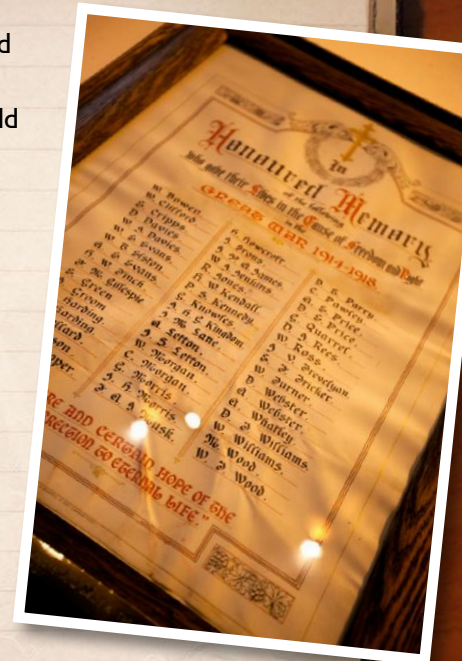 d
ld
In
Honoured Memory
of the following
Who gave their Lives in the Cause of Freedom and Right
in the
GREAT WAR 1914-1918.
W. Bowen.
W. Clifford.
Cripps
D. Davies
W. J. Davies.
W. G. Evans.
Evans
W. Finch.
J. Mc Gillespie
Groom
Harding.
Harding.
Howcroft.
J. Irons
J. D. G. James
W. A. Jenkins
R. Jones.
W. Kendall.
P. S. Kennedy.
C. Knowles.
J. H. S. Kingdom
J. Mc Lane.
A. Lefton.
J. S. Lefton.
W. Morgan.
C. Morgan.
G. Morris.
J. H. Morris
D. E. Parry.
D. Powley
D. E. Price.
A. J. Price.
D. Quarrel
D. J. Rees.
W. Ross
J. V. Trevelyan.
C. F. Tricker.
W. Turner.
D. Webster.
A. Webster.
C. Whatley.
D. J. Williams.
W. Williams.
Mc Wood.
W. J. Wood.
RE AND CERTAIN HOPE OF THE
RRECTION TO ETERNAL LIFE."